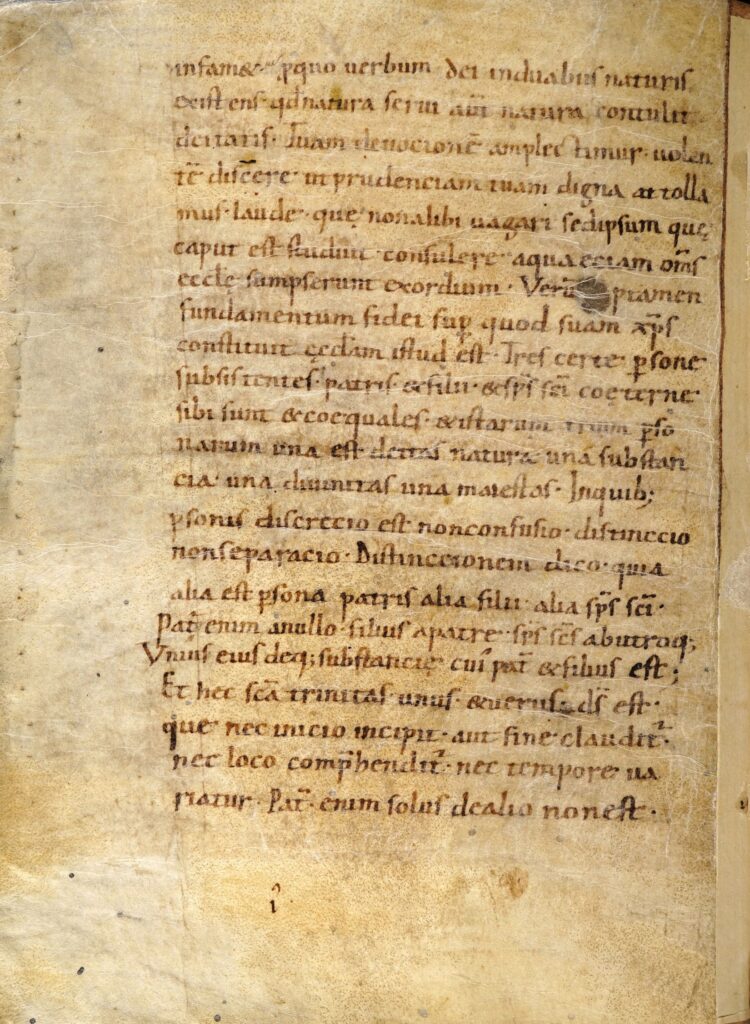 infam& pquo uerbum dei induabus naturis
existens qd natura serui aut natura contulit
deitatis · Tuam deuocionē amplectimur uolen
tē discere ut prudenciam tuam digna attolla
mus laude · quę non alibi uagari sed ipsum que
caput est studuit consulere · a qua eciam om̄s
eccle sumpserunt exordium · Verū ptamen
fundamentum fidei sup quod suam xp̄s
constituit ęcclam istud est · Tres certe psone
subsistentes · patris & filii · & sp̄s sc̄i coęterne
sibi sunt & coequales · & istarum trium pso
narum una est deitas natura una substan
cia una diuinitas una maiestas · In quib;
psonis discrecio est non confusio · distinccio
non separacio · Distinccionem dico · quia
alia est psona patris alia filii alia sp̄s sc̄i ·
Pat̄ enim a nullo · filius a patre · sp̄s sc̄s ab utroq;
Vnius eiusdeq; substancię cui' pat̄ & filius est ;
Et hec sc̄a trinitas unus · & uerus · ds̄ est ·
que nec inicio incipit · aut fine claudit ·
nec loco comphendit · nec tempore ua
riatur · Pat̄ · enim solus de alio non est ·
i